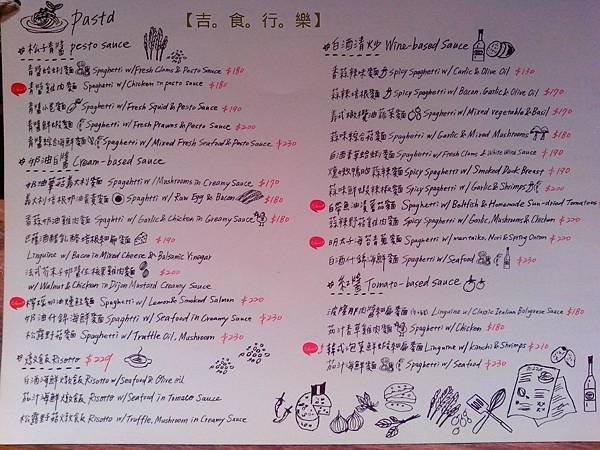 pasta
【吉。食。行。樂】
松子青醬 pesto sauce
青醬蛤蜊麵 Spaghetti w/Fresh Clams & Pesto Sauce $180
青醬雞肉麵 Spaghetti w/Chicken in pesto sauce $180
青醬小卷麵 Spaghetti w/Fresh Squid & Pesto Sauce $190
青醬鮮蝦麵 Spaghetti w/Fresh Prawns & Pesto Sauce $200
青醬綜合海鮮麵 Spaghetti w/Mixed Fresh Seafood & Pesto Sauce $230
奶油白醬 Cream-based sauce
奶油蘑菇義大利麵 Spagahtti w/Mushrooms in Creamy Sauce $170
義大利培根奶油蛋黃麵 Spaghetti w/Raw Egg & Bacon $180
香蒜奶油雞肉麵 Spaghetti w/Garlic & Chicken in Creamy Sauce $180
巴薩米醋乳酪培根細扁麵 $190
Linguine w/Bacon in Mixed Cheese & Balsamic Vinegar
法式芥末子奶醬核桃雞肉麵 $200
w/Walnut & Chicken in Dijon Mustard Creamy Sauce
檸檬奶油燻鮭麵 Spaghetti w/Lemon & Smoked Salmon $220
奶油什錦海鮮麵 Spaghetti w/Seafood in Creamy Sauce $230
松露野菇麵 Spaghetti w/Truffle Oil, Mushroom $230
燉飯 Risotto $229
白酒海鮮燉飯 Risotto w/Seafood & Olive oil
茄汁海鮮燉飯 Risotto w/Seafood in Tomato Sauce
松露野菇燉飯 Risotto w/Truffle, Mushroom in Creamy Sauce
白酒清炒 Wine-based Sauce
香蒜辣味麵 Spicy Spaghetti w/Garlic & Olive Oil $130
蒜辣培根麵 Spicy Spaghetti w/Bacon, Garlic & Olive Oil $170
義式橄欖油蔬菜麵 Spaghetti w/Mixed vegetable & Basil $170
蒜味綜合菇麵 Spaghetti w/Garlic & Mixed Mushrooms $180
白酒青蒜蛤蜊麵 Spaghetti w/Fresh Clams & White Wine Sauce $190
煙燻鴨胸蒜辣麵 Spicy Spaghetti w/Smoked Duck Breast $190
蒜味鮮蝦辣椒麵 Spicy Spaghetti w/Garlic & Shrimps $200
Spaghetti w/Baby Fish & Homemade Sun-dried Tomatoes
蒜辣野菇雞肉麵 Spicy Spaghetti w/Garlic, Mushrooms & Chicken $220
明太子海苔青蔥麵 Spaghetti w/mentaiko, Nori & Spring Onion $220
白酒什錦海鮮麵 Spaghetti w/Seafood $230
紅醬 Tomato-based sauce
波隆那肉醬細扁麵 Linguine w/Classic Italian Bolognese Sauce $180
茄汁香草雞肉麵 Spaghetti w/Chicken $180
韓式泡菜鮮蝦細扁麵 Linguine w/Kimchi & Shrimps $210
茄汁海鮮麵 Spaghetti w/Seafood $230